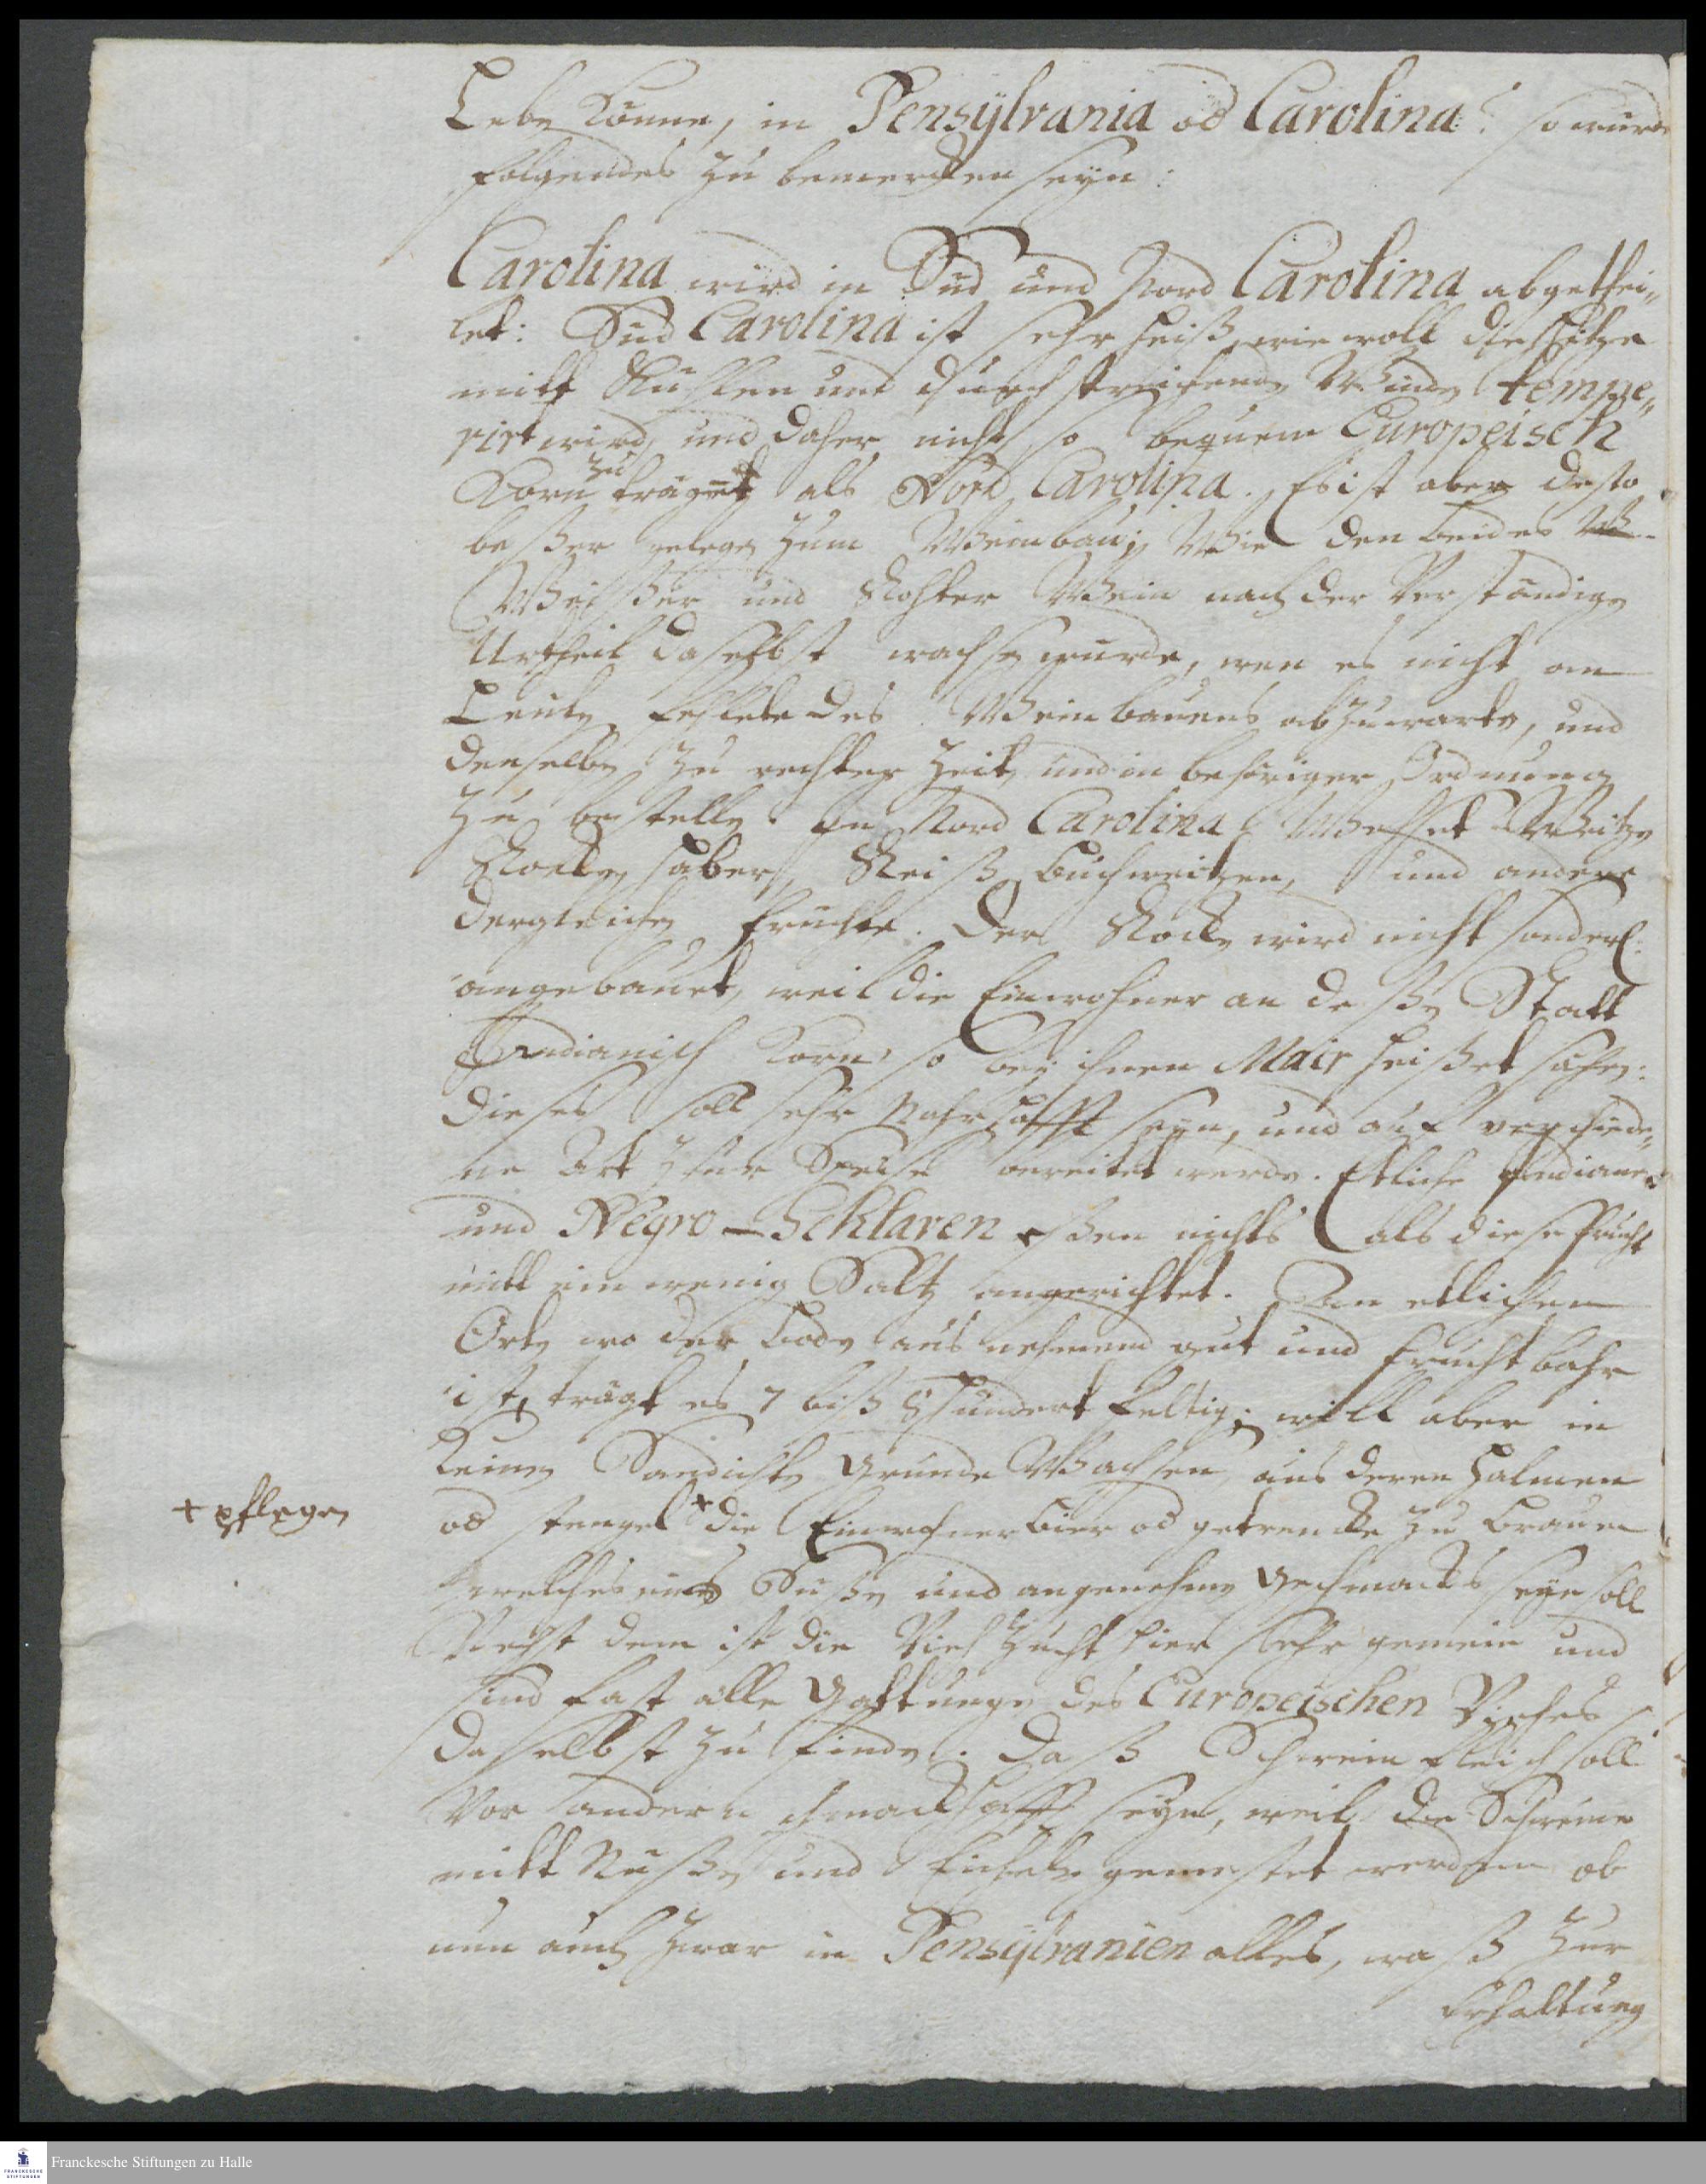 Leben könne, in Pensÿlvania od Carolina? so wurde
folgendes zu bemercken seÿn:
Carolina wird in Sud und Nord Carolina abgethei„
let: Sud Carolina ist sehr heiß, wie woll die Hitze
mitt Kuhlen und durchstreichenden Winden tempe„
rirt wird, und daher nicht so bequem Europeisch
Korn zu traget als Nord Carolina. Es ist aber desto
beßer gelegen zum Weinbau; Wie den beides W
Weißer und Rohter Wein nach der Verständigen
Urtheil daselbst wachsen wurde, wen es nicht an
Leuten fehlete des Weinbauens abzuwarten, und
denselben zu rechter Zeit, und in behöriger Ordnung
zu bestellen. In Nord Carolina Wachset Weitzen
Rocken, haber, Reiß, buchweitzen, und andere
dergleichen fruchte. Der Rocken wird nicht sonderl:
angebauet, weil die Einwohner an deßen Statt
Indianisch Korn, so beÿ ihnen Mair heißet sähen:
Dieses soll sehr Nahrhafft seÿn, und auf verschiede„
ne Art zur Speise bereitet werden. Etliche Indianer
und Negro-Schlaven eßen nichts als diese frucht
mitt ein wenig Saltz angerichtet. An etlichen
Orten wo der boden ausnehmend gut und fruchtbahr
ist, trägt es 7 biß 8 hundert feltig; will aber in
keinen Sandichten Grunde Wachsen, aus deren Halmen
+ pflegen
od stengel + die Einwohner bier od getrencke zu brauen
welches eines Sußen und angenehmen Geschmacks seÿn soll
Nechst dem ist die Viehzucht hier sehr gemein und
sind fast alle Gattungen des Europeischen Viehes
daselbst zu finden. Daß Schweinfleisch soll
Vor andern schmackhafft seÿn, weil die Schweine
mitt Nußen und Eicheln gemestet werden ob
nun auch zwar in Pensÿlvanien alles, waß zur
Erhaltung
Franckesche Stiftungen zu Halle
FRANCKESCHE
STIFTUNGEN